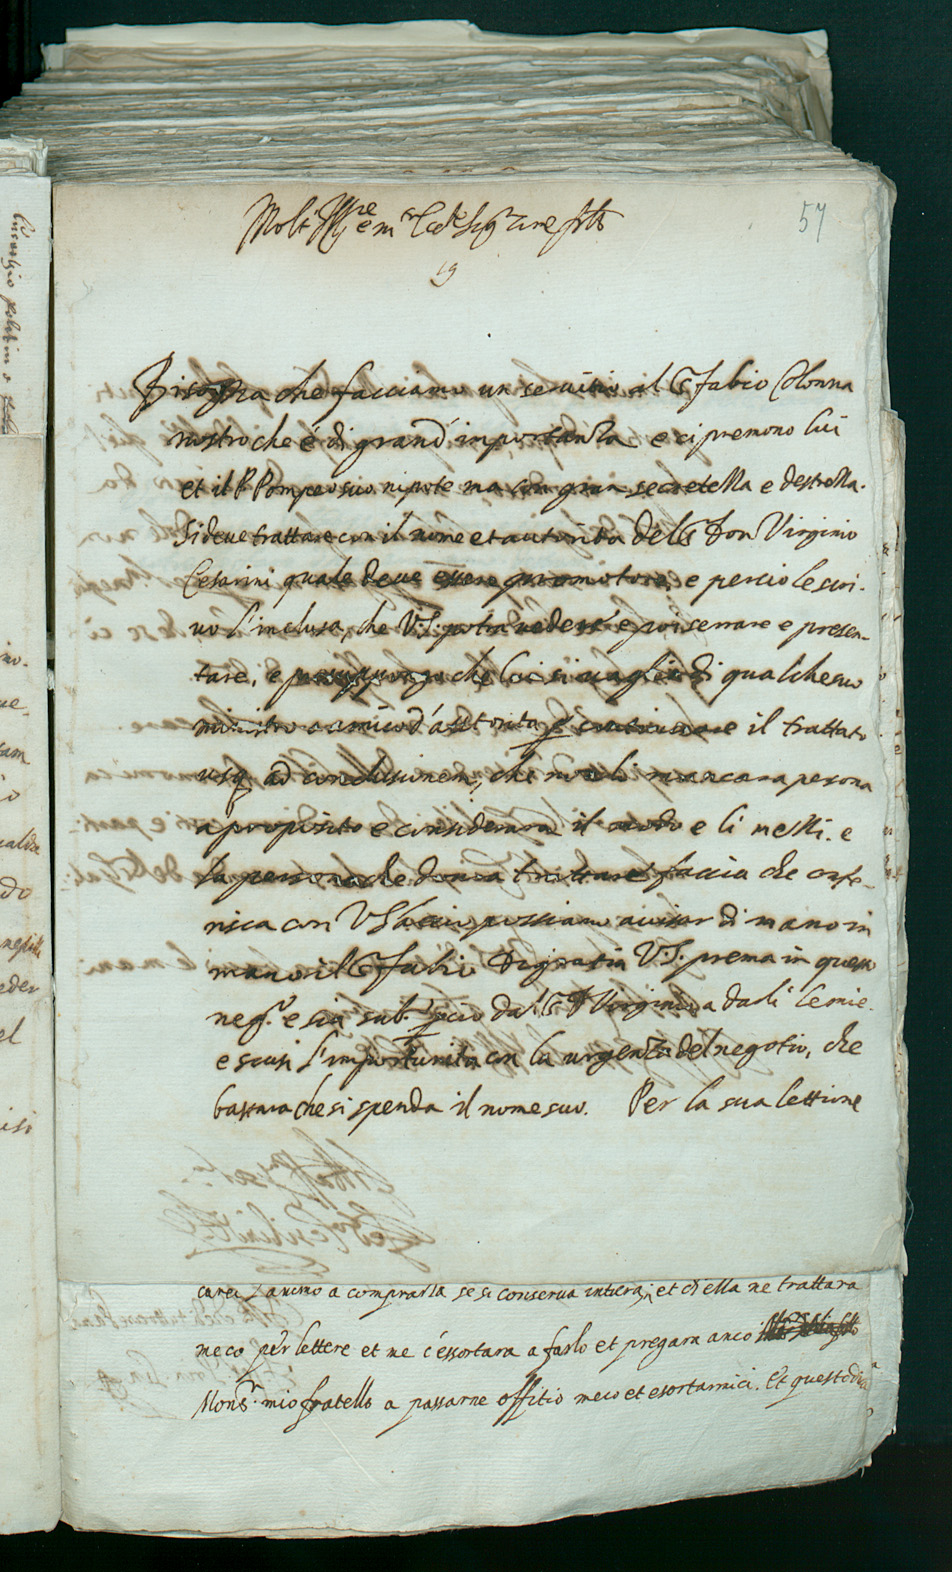 57
Molt Ill.re e m.to
19
Bisogna che facciamo un servitio al S.r Fabio Colonna
nostro che é di grand'importanza e ci premono lui
et il P. Pompeo suo nipote ma con gran secretezza e destrezza.
Si deve trattare con il nome et autorità del S.r Don Virginio
Cesarini quale deve essere promotore, e perciò le scri-
vo l'inclusa, che V.S. potrà vedere e poi serrare e presen-
tare, e presuppongo che lui si vaglia di qualche suo
ministro o amico d'auttorità per il trattato
usq. ad conclusionem, che non li mancara persona
a proposito e considerara il modo e li mezzi. e
la persona che dovra trattare faccia che confe-
risca con V.S. acciò possiamo avisar di mano in
mano il S.r Fabio. Di gratia V.S. prema in questo
neg.o e sia sub.o dal S.r D. Virginio a darli le mie.
e scusi l'importunita con la urgenza del negotio, che
bastara che si spenda il nome suo. Per la sua lettione
animo a comprarla se si conserva intiera, et ch'ella ne trattara
meco per lettere et me c'essortara a farlo et pregara anco
Mons.r mio fratello a passarne offitio meco et esortarmici. Et questo